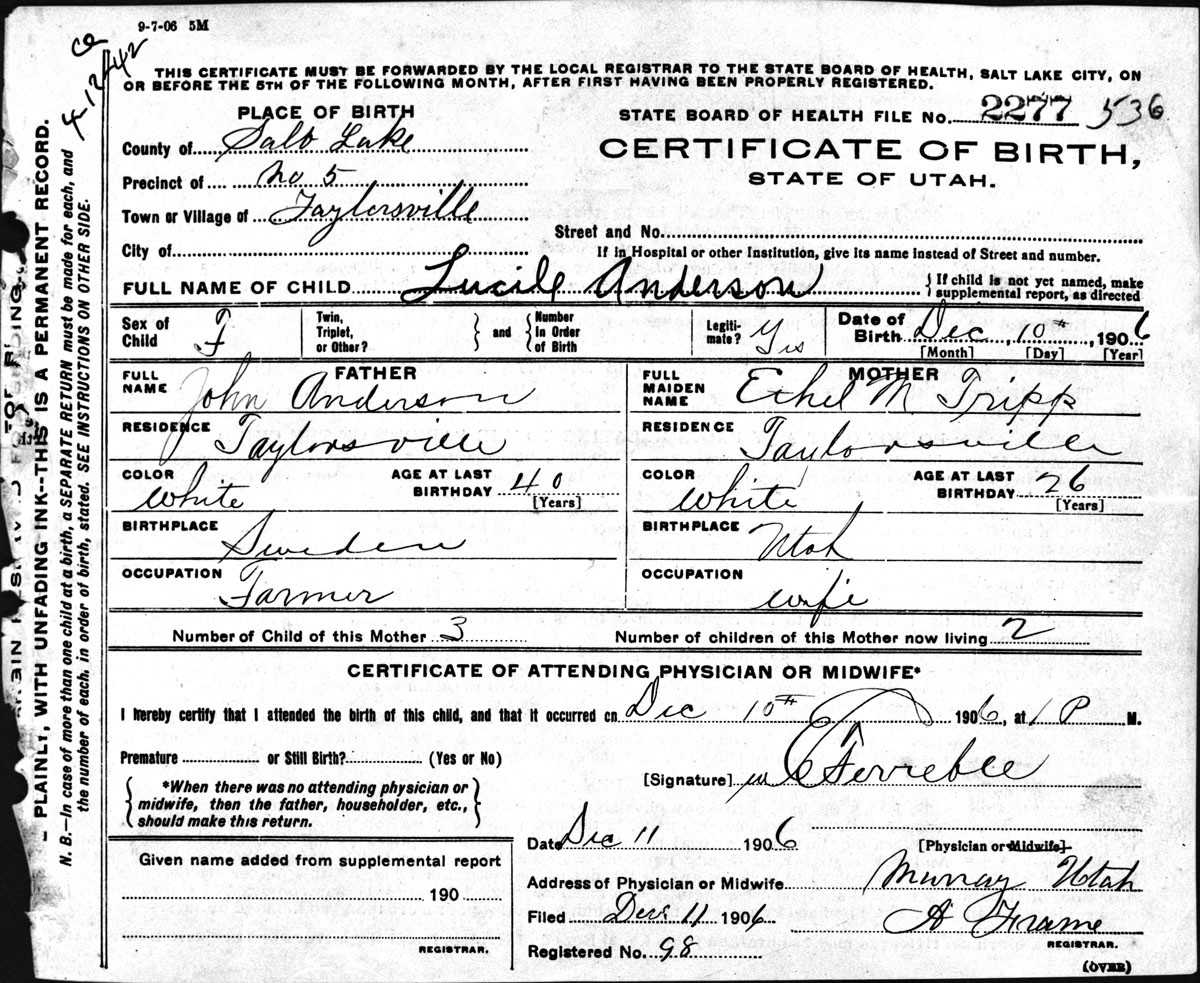 9-7-06 5M
ca
4-12-42
THIS CERTIFICATE MUST BE FORWARDED BY THE LOCAL REGISTRAR TO THE STATE BOARD OF HEALTH, SALT LAKE CITY, ON
OR BEFORE THE 5TH OF THE FOLLOWING MONTH, AFTER FIRST HAVING BEEN PROPERLY REGISTERED.
PLACE OF BIRTH
County of Salt Lake
Precinct of No 5
Town or Village of Taylorsville
City of
STATE BOARD OF HEALTH FILE No. 2277 536
CERTIFICATE OF BIRTH,
STATE OF UTAH.
Street and No.
If in Hospital or other Institution, give its name instead of Street and number.
FULL NAME OF CHILD Lucile Anderson { If child is not yet named, make
supplemental report, as directed
Sex of Child F
Twin, Triplet, or Other? } and { Number in Order of Birth
Legitimate? Yes
Date of Birth Dec 10th, 1906
[Month] [Day] [Year]
FATHER
FULL NAME John Anderson
RESIDENCE Taylorsville
COLOR White AGE AT LAST BIRTHDAY 40
[Years]
BIRTHPLACE Sweden
OCCUPATION Farmer
MOTHER
FULL MAIDEN NAME Ethel M Tripp
RESIDENCE Taylorsville
COLOR White AGE AT LAST BIRTHDAY 26
[Years]
BIRTHPLACE Utah
OCCUPATION wife
Number of Child of this Mother 3 Number of children of this Mother now living 2
CERTIFICATE OF ATTENDING PHYSICIAN OR MIDWIFE*
I hereby certify that I attended the birth of this child, and that it occurred on Dec 10th 1906, at 1 P M.
Premature or Still Birth? (Yes or No)
{ *When there was no attending physician or
midwife, then the father, householder, etc.,
should make this return. }
[Signature] Ferrebee
Date Dec 11 1906
[Physician or Midwife]
Address of Physician or Midwife Murray Utah
Filed Dec. 11 1906 A Frame
REGISTRAR.
Registered No. 98
(OVER)
Given name added from supplemental report
190
REGISTRAR.
PLAINLY, WITH UNFADING INK--THIS IS A PERMANENT RECORD.
N. B.—In case of more than one child at a birth, a SEPARATE RETURN must be made for each, and
the number of each, in order of birth, stated. SEE INSTRUCTIONS ON OTHER SIDE.